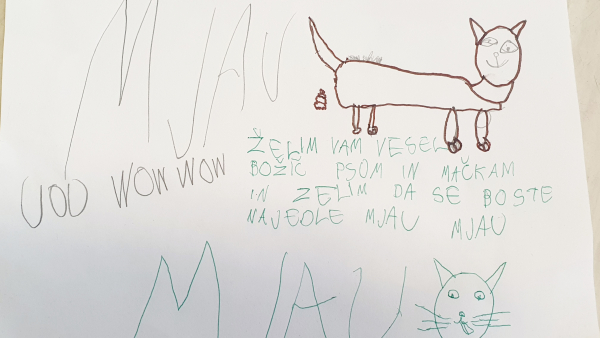 MJAU
VOV WOW WOW
ŽELIM VAM VESEL
BOŽIČ PSOM IN MAČKAM
IN ŽELIM DA SE BOSTE
NAJEDLE MJAU MJAU
MJAU